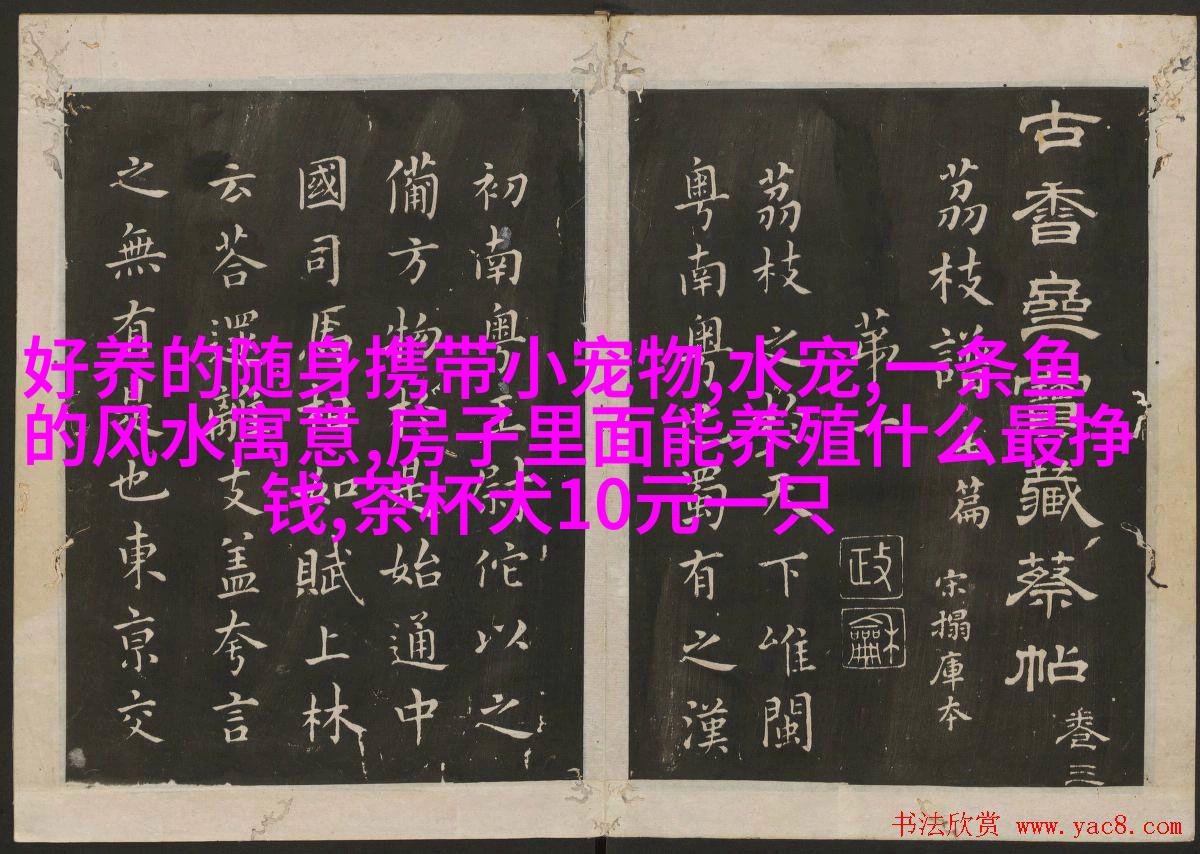 古香齋寶藏蔡帖 卷三
荔枝譜七篇 宋搨庫本
第一
政龢
荔枝之於天下唯閩
粵南粵巴蜀有之漢
初南粵王尉佗以之
備方物於是始通中
國司馬相如賦上林
云荅遝離支盖夸言
之無有是也東京交
好养的随身携带小宠物,水宠,一条鱼
的风水寓意,房子里面能养殖什么最挣
钱,茶杯犬10元一只
书法欣赏 www.yac8.com